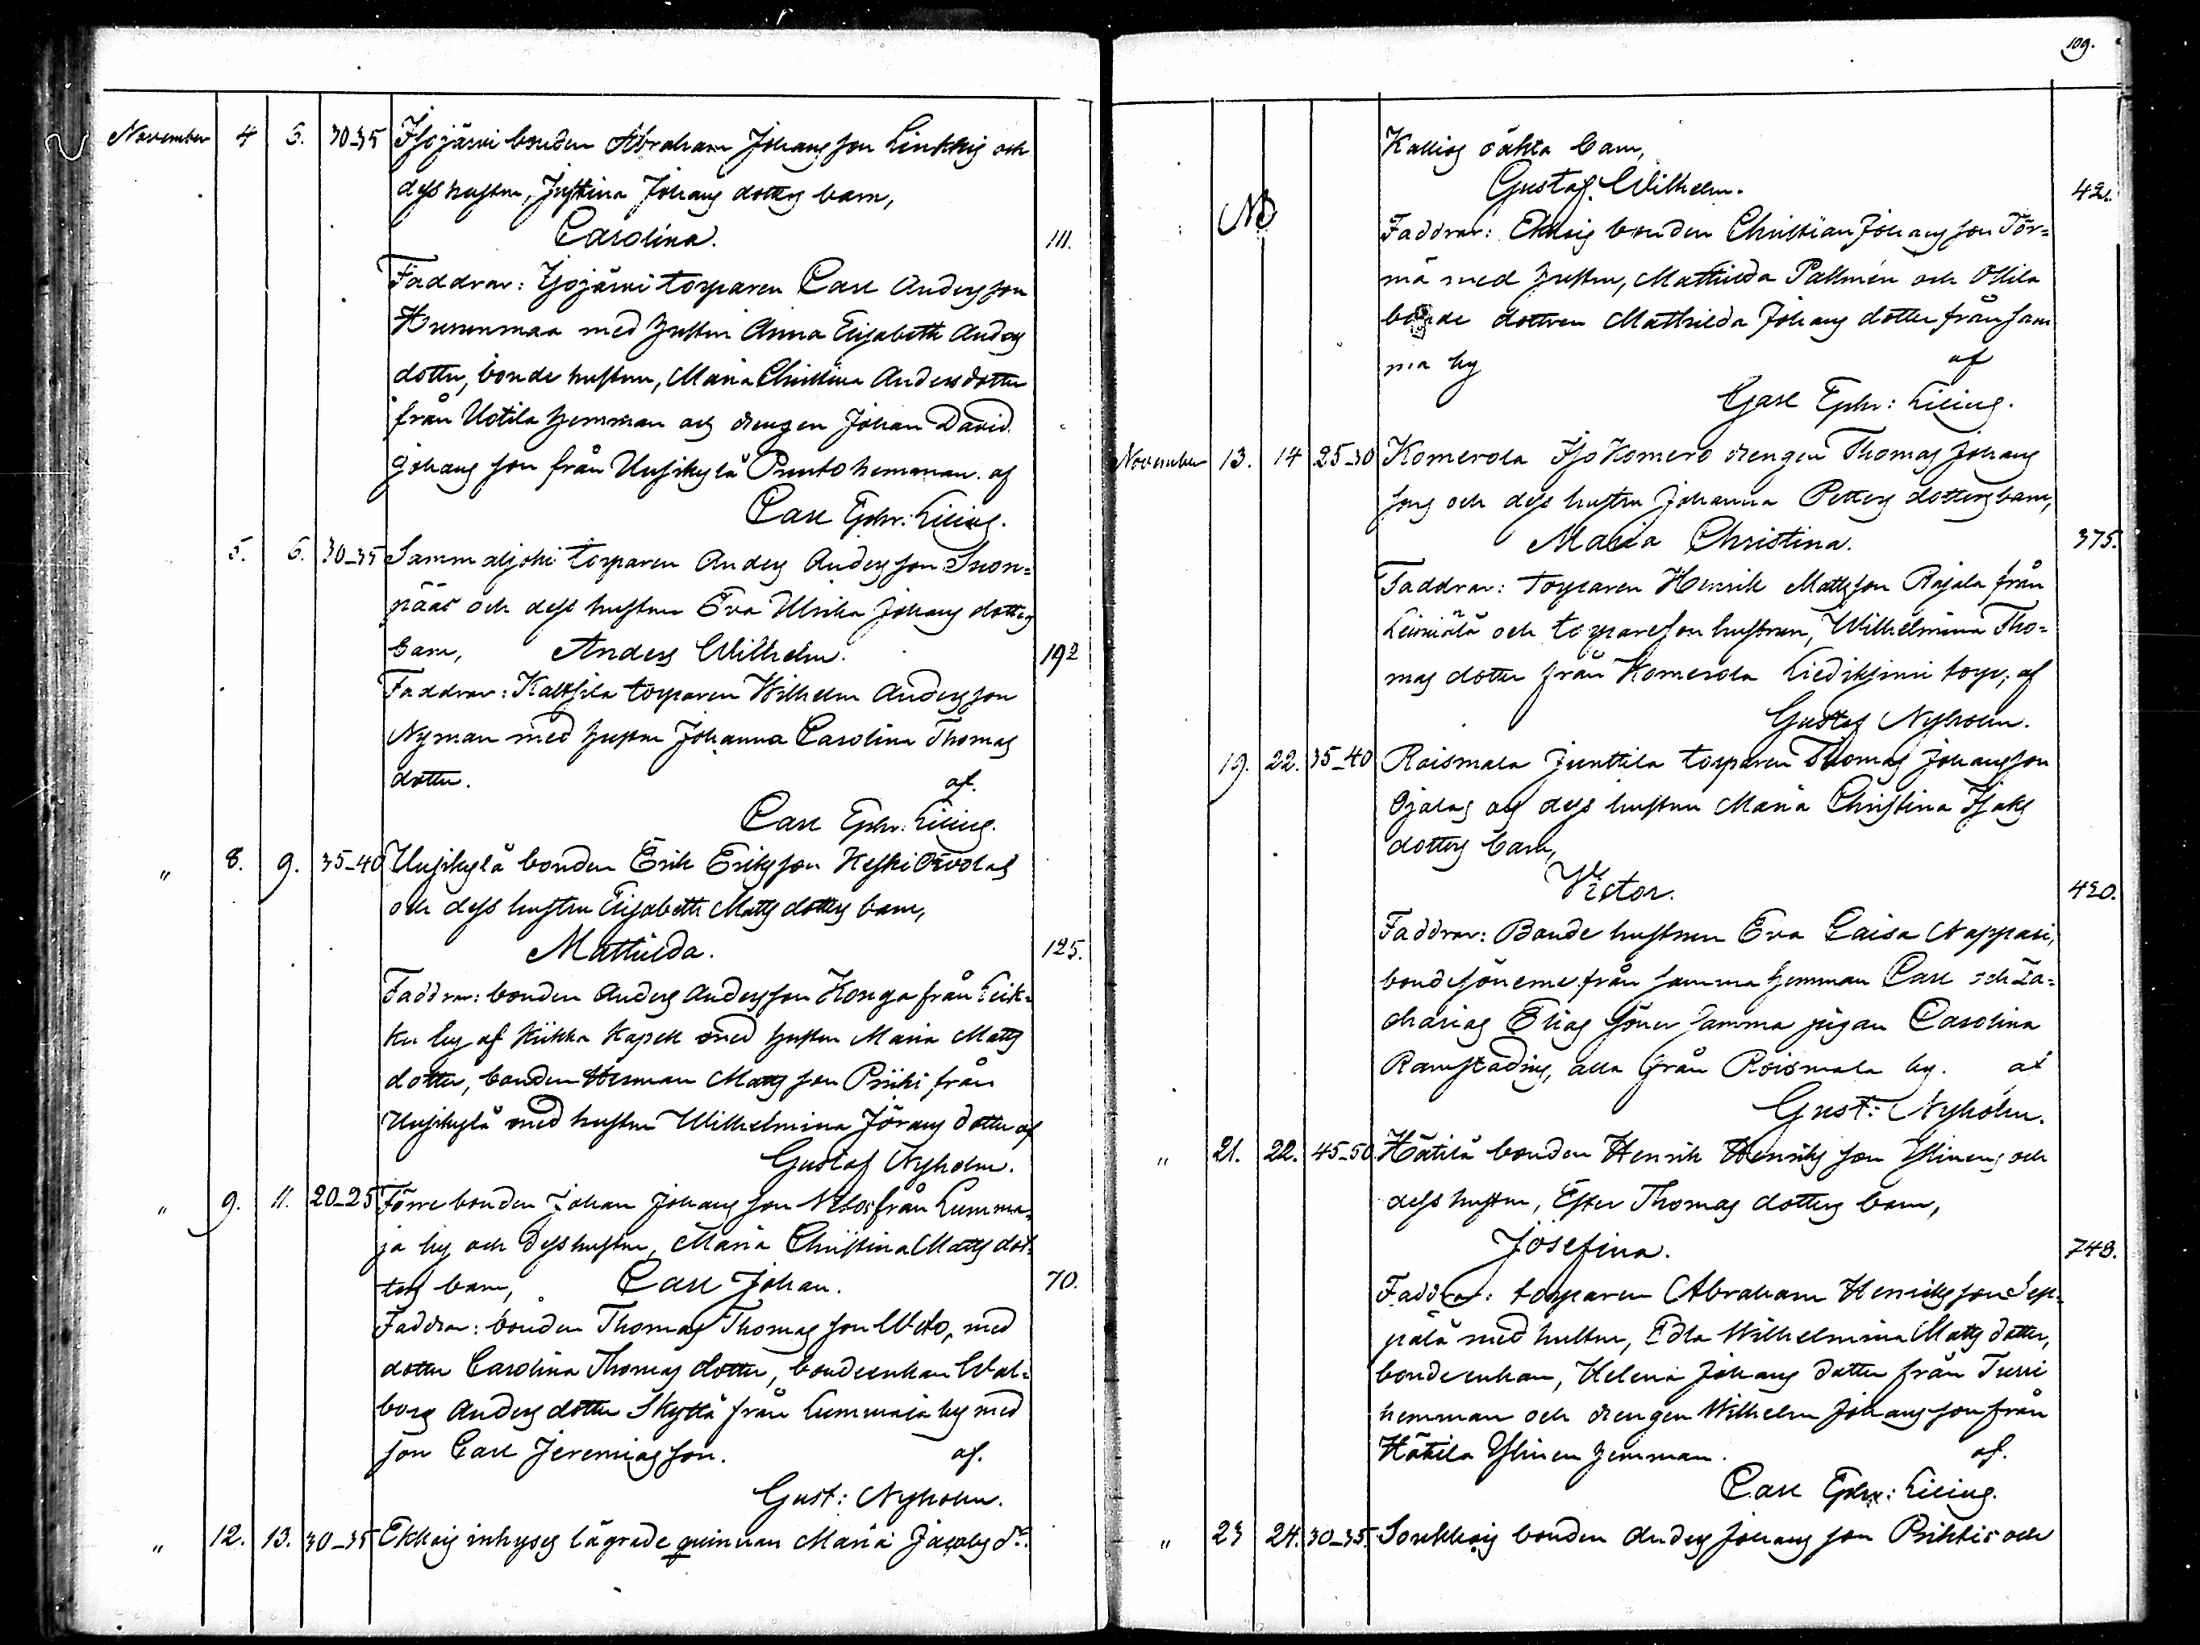 November 4 5. 30-35 Isojärvi bonden Abraham Johansson Linkkis och
dess hustru, Justina Johans dotters barn,
Carolina. 111.
Faddrar: Isojärvi torparen Carl Andersson
med hustru Anna Elisabeth Anders
dotter, bonde hustrun, Maria Christina Andersdotter
från Uotila hemman och drengen Johan David
Johansson från Uusikylä Punto hemman. af
Carl Ephr: Lilius.
5. 6. 30-35 Sammaljoki torparen Anders Andersson Snon=
pääs och dess hustru Eva Ulrika Johans dotters
barn, Anders Wilhelm. 192
Faddrar: Kaltsila torparen Wilhelm Andersson
Nyman med hustru Johanna Carolina Thomas
dotter. af.
Carl Ephr: Lilius.
" 8. 9. 35-40 Uusikylä bonden Erik Eriksson Keski Orvolas
och dess hustru Elisabeth Matts dotters barn,
Mathilda. 125.
Faddrar: bonden Anders Andersson Konga från Leik=
ku by af Kiikka Kapell med hustru Maria Matts
dotter, bonden Herman Mattsson Priiki från
Uusikylä med hustru Wilhelmina Jörans dotter af
Gustaf Nyholm.
" 9. 11. 20-25 Förre bonden Johan Johansson från Lumma=
ja by och dess hustru, Maria Christina Matts dot=
ters barn, Carl Johan. 70.
Faddrar: bonden Thomas Thomasson med
dotter Carolina Thomas dotter, bondeenkan Wal=
borg Anders dotter Skyttä från Lummaja by med
son Carl Jeremiasson. af.
Gust: Nyholm.
" 12. 13. 30-35 Ekkois inhyses lägrade quinnan Maria Jacobs dr.
109.
Kallios oäkta barn,
Gustaf Wilhelm. 421.
NB
Faddrar: Ekkois bonden Christian Johansson Tör=
mä med hustru, Mathilda Pallmén och Ollila
bonde dottren Mathilda Johans dotter från sam
ma by af
Carl Ephr: Lilius.
November 13. 14 25-30 Komerola Iso Komero drengen Thomas Johans
sons och dess hustru Johanna Petters dotters barn,
Maria Christina. 375.
Faddrar: torparen Henrik Mattsson Rajala från
Leiniälä och torpareson hustrun, Wilhelmina Tho=
mas dotter från Komerola torp; af
Gustaf Nyholm.
19. 22. 35-40 Roismala Junttila torparen Thomas Johansson
Ojalas och dess hustru Maria Christina Isaks
dotters barn,
Victor. 420.
Faddrar: Bonde hustrun Eva Caisa Nappari,
bondesönerne från samma hemman Carl och Za=
charias Elias söner samma pigan Carolina
Ramstadius, alla från Roismala by. af
Gust: Nyholm.
" 21. 22. 45-50. Hätilä bonden Henrik Henriksson Ylinens och
dess hustru, Ester Thomas dotters barn,
Josefina. 748.
Faddrar: torparen Abraham Henriksson Sep=
pälä med hustru, Edla Wilhelmina Matts dotter,
bondeenkan, Helena Johans dotter från Turri
hemman och drengen Wilhelm Johansson från
Hätilä Ylinen hemman. af.
Carl Ephr: Lilius.
" 23 24. 30-35. bonden Anders Johansson och